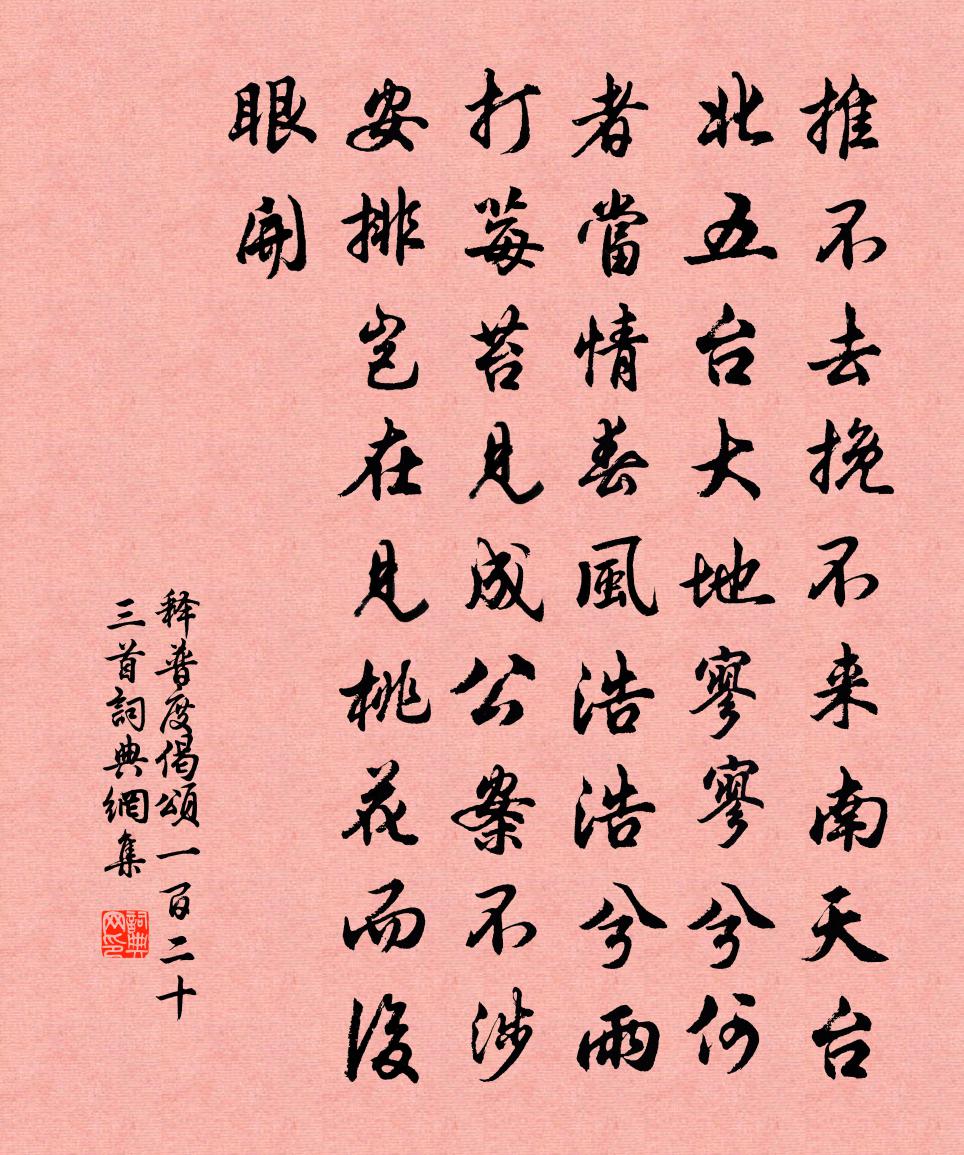 推不去挽不来南天台
北五台大地寥寥兮何
者當情春風浩浩兮雨
打莓苔見成公案不涉
安排岂在見桃花而後
眼開
释普度偈頌一百二十
三首詞典網集
詞典网印